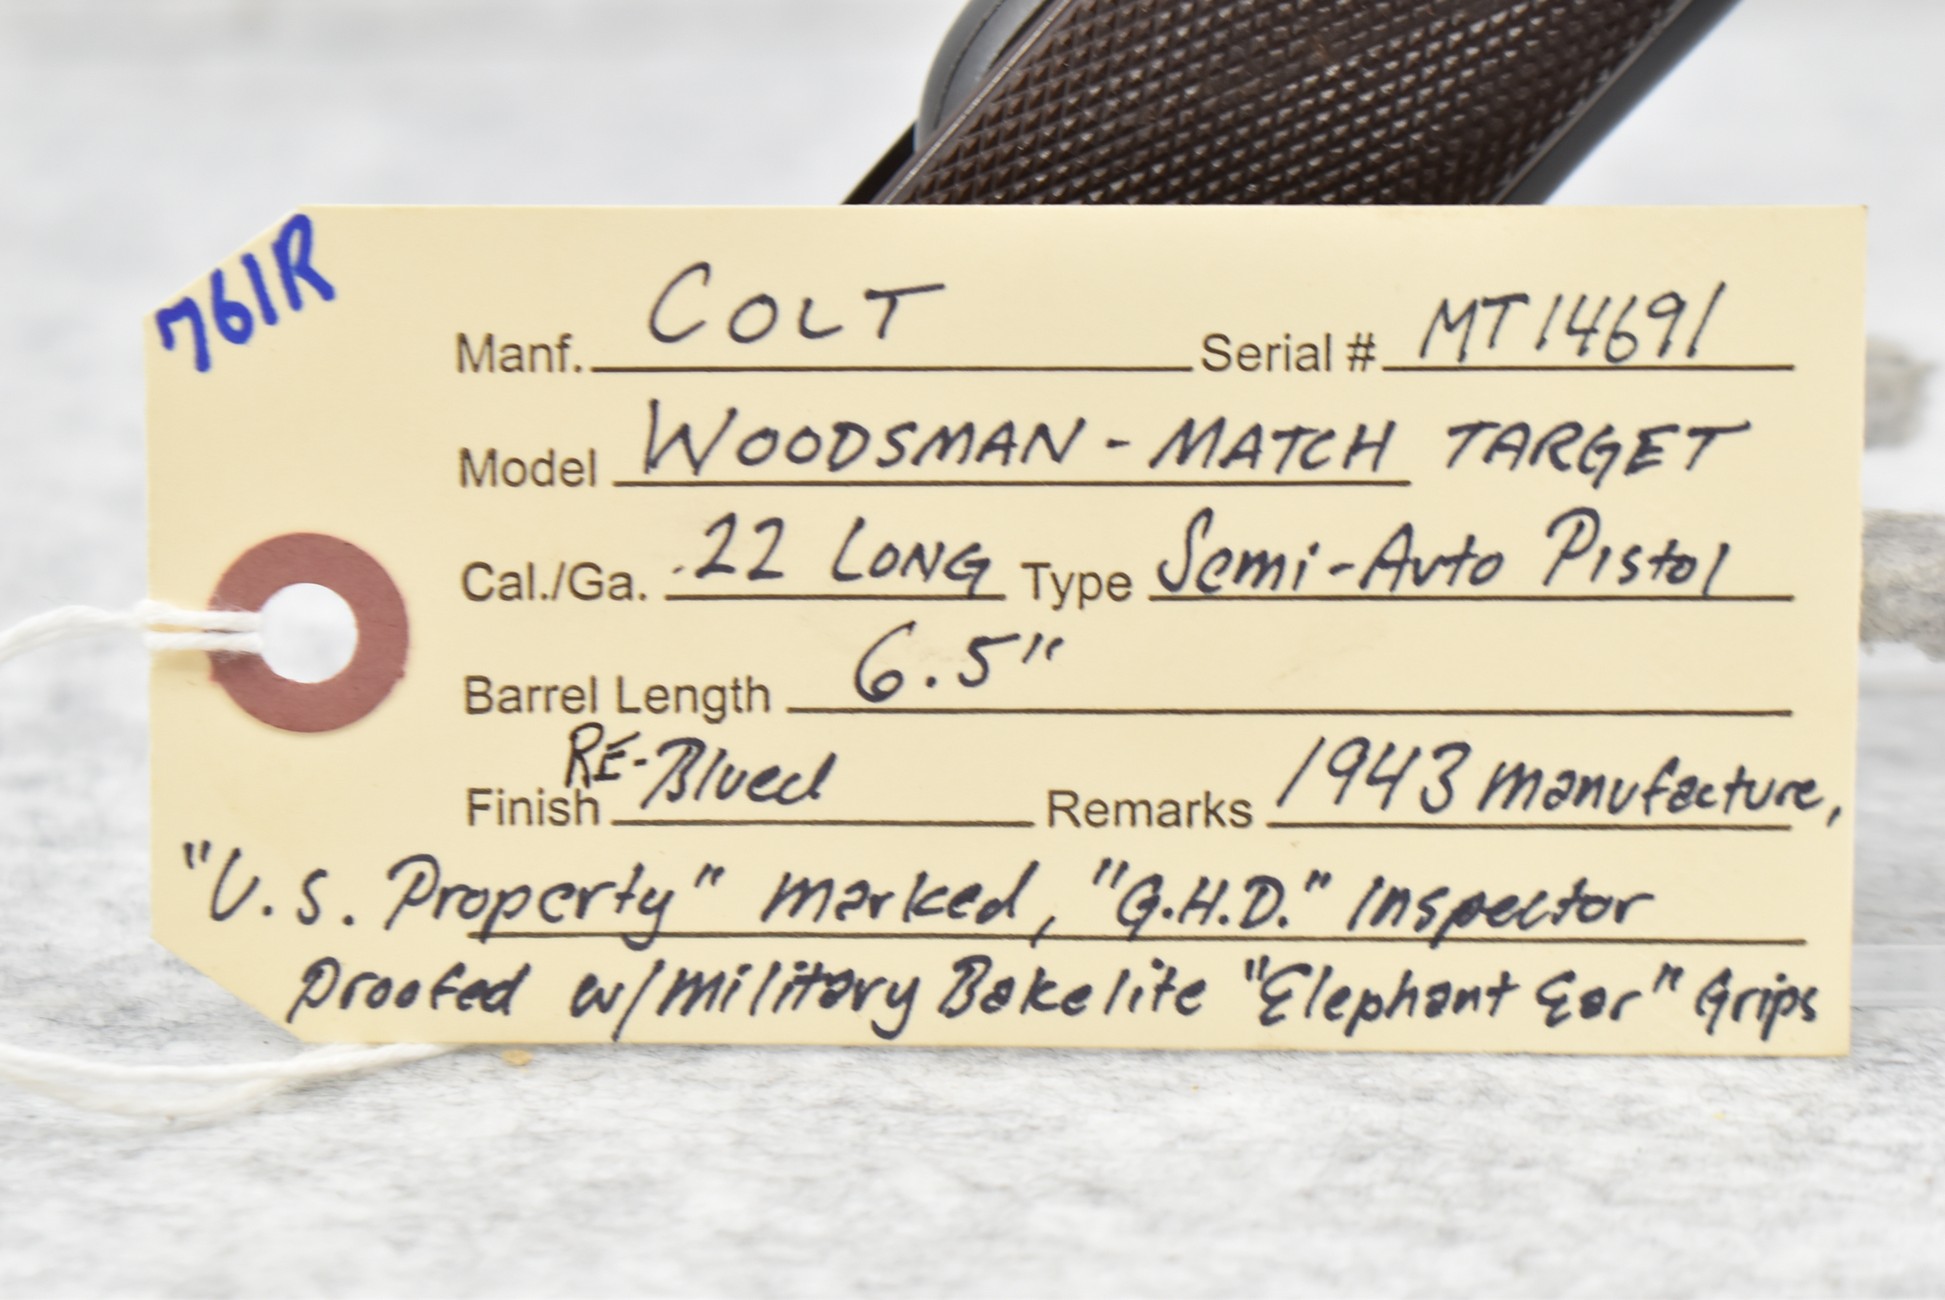 761R
Manf. COLT Serial # MT14691
Model WOODSMAN - MATCH TARGET
Cal./Ga. .22 LONG Type Semi-Auto Pistol
Barrel Length 6.5"
Finish RE-Blued Remarks 1943 manufacture,
"U.S. Property" marked, "G.H.D." Inspector
proofed w/military Bakelite "Elephant Ear" Grips